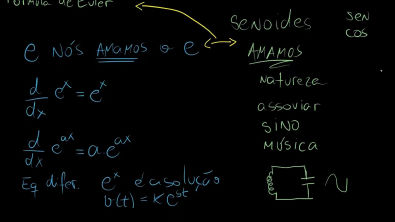 Fórmula de Euler
e NÓS AMAMOS o e
d/dx e^x = e^x
d/dx e^ax = a e^ax
Eq difer. e^x é a solução
v(t) = K e^st
SENOIDES
AMAMOS
natureza
assoviar
SINO
MÚSICA
SEN
COS